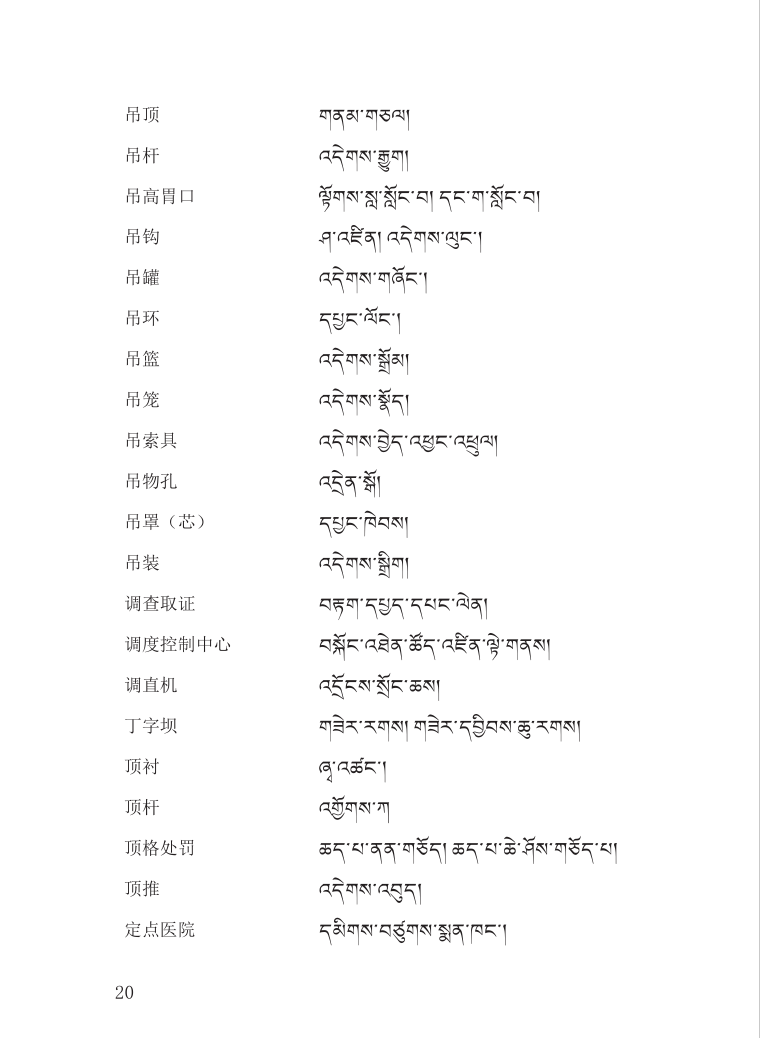 吊顶 གནམ་གཅལ།
吊杆 འདེགས་རྒྱུག།
吊高胃口 ལྟོགས་སླ་སློང་བ། དང་ག་སློང་བ།
吊钩 ཤ་འཛིན། འདེགས་ལུང་།
吊罐 འདེགས་གཞོང་།
吊环 དཔྱང་ལོང་།
吊篮 འདེགས་སྒྲོམ།
吊笼 འདེགས་སྣོད།
吊索具 འདེགས་བྱེད་འཕྱང་འཕྲུལ།
吊物孔 འདྲེན་སྒོ།
吊罩（芯） དཔྱང་ཁེབས།
吊装 འདེགས་སྒྲིག།
调查取证 བརྟག་དཔྱད་དཔང་ལེན།
调度控制中心 བསྐོང་འཐེན་ཚོད་འཛིན་ལྟེ་གནས།
调直机 འདྲོངས་སྲོང་ཆས།
丁字坝 གཟེར་རགས། གཟེར་དབྱིབས་ཆུ་རགས།
顶衬 ཞྭ་འཚང་།
顶杆 འགྱོགས་ཀ
顶格处罚 ཆད་པ་ནན་གཅོད། ཆད་པ་ཆེ་ཤོས་གཅོད་པ།
顶推 འདེགས་འབུད།
定点医院 དམིགས་བཙུགས་སྨན་ཁང་།
20